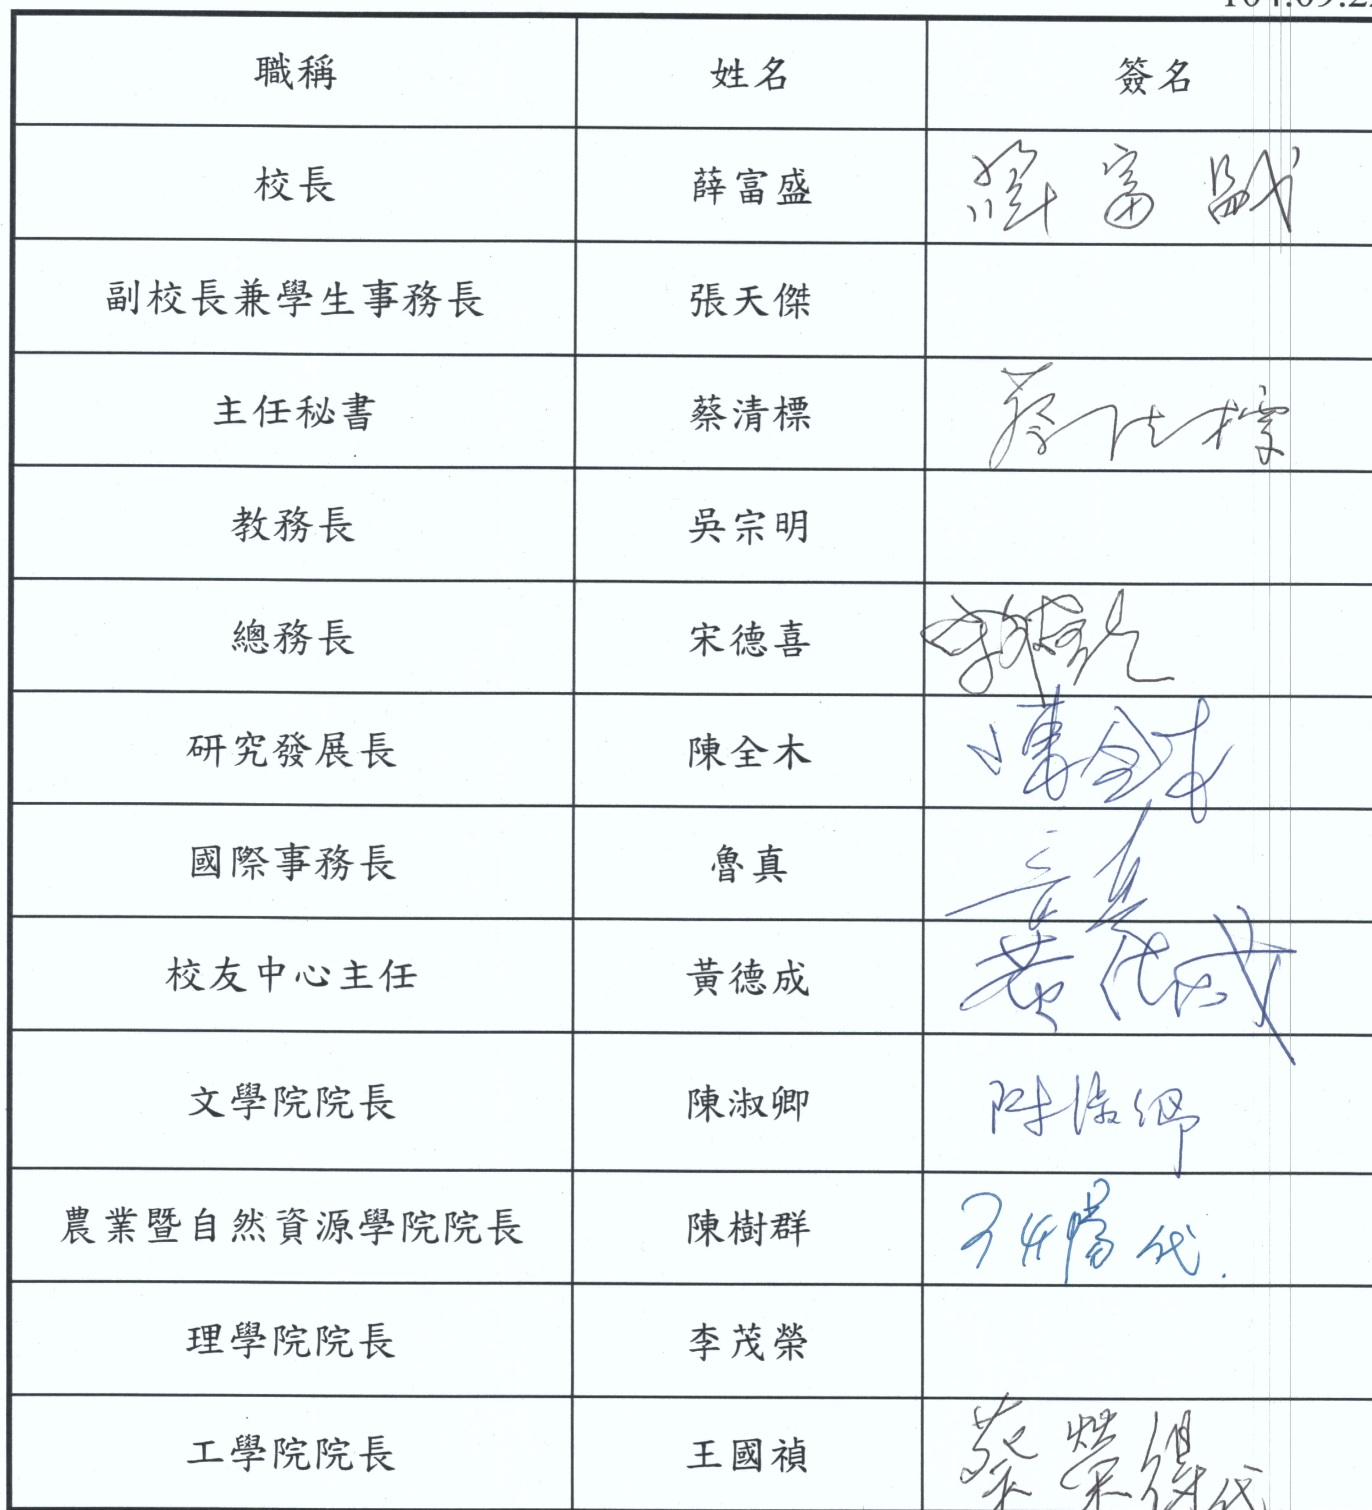 職稱 姓名 簽名
校長 薛富盛 薛富盛
副校長兼學生事務長 張天傑
主任秘書 蔡清標 蔡清標
教務長 吳宗明
總務長 宋德喜
研究發展長 陳全木 陳全木
國際事務長 魯真
校友中心主任 黃德成 黃德成
文學院院長 陳淑卿 陳淑卿
農業暨自然資源學院院長 陳樹群 代
理學院院長 李茂榮
工學院院長 王國禎 蔡榮得代